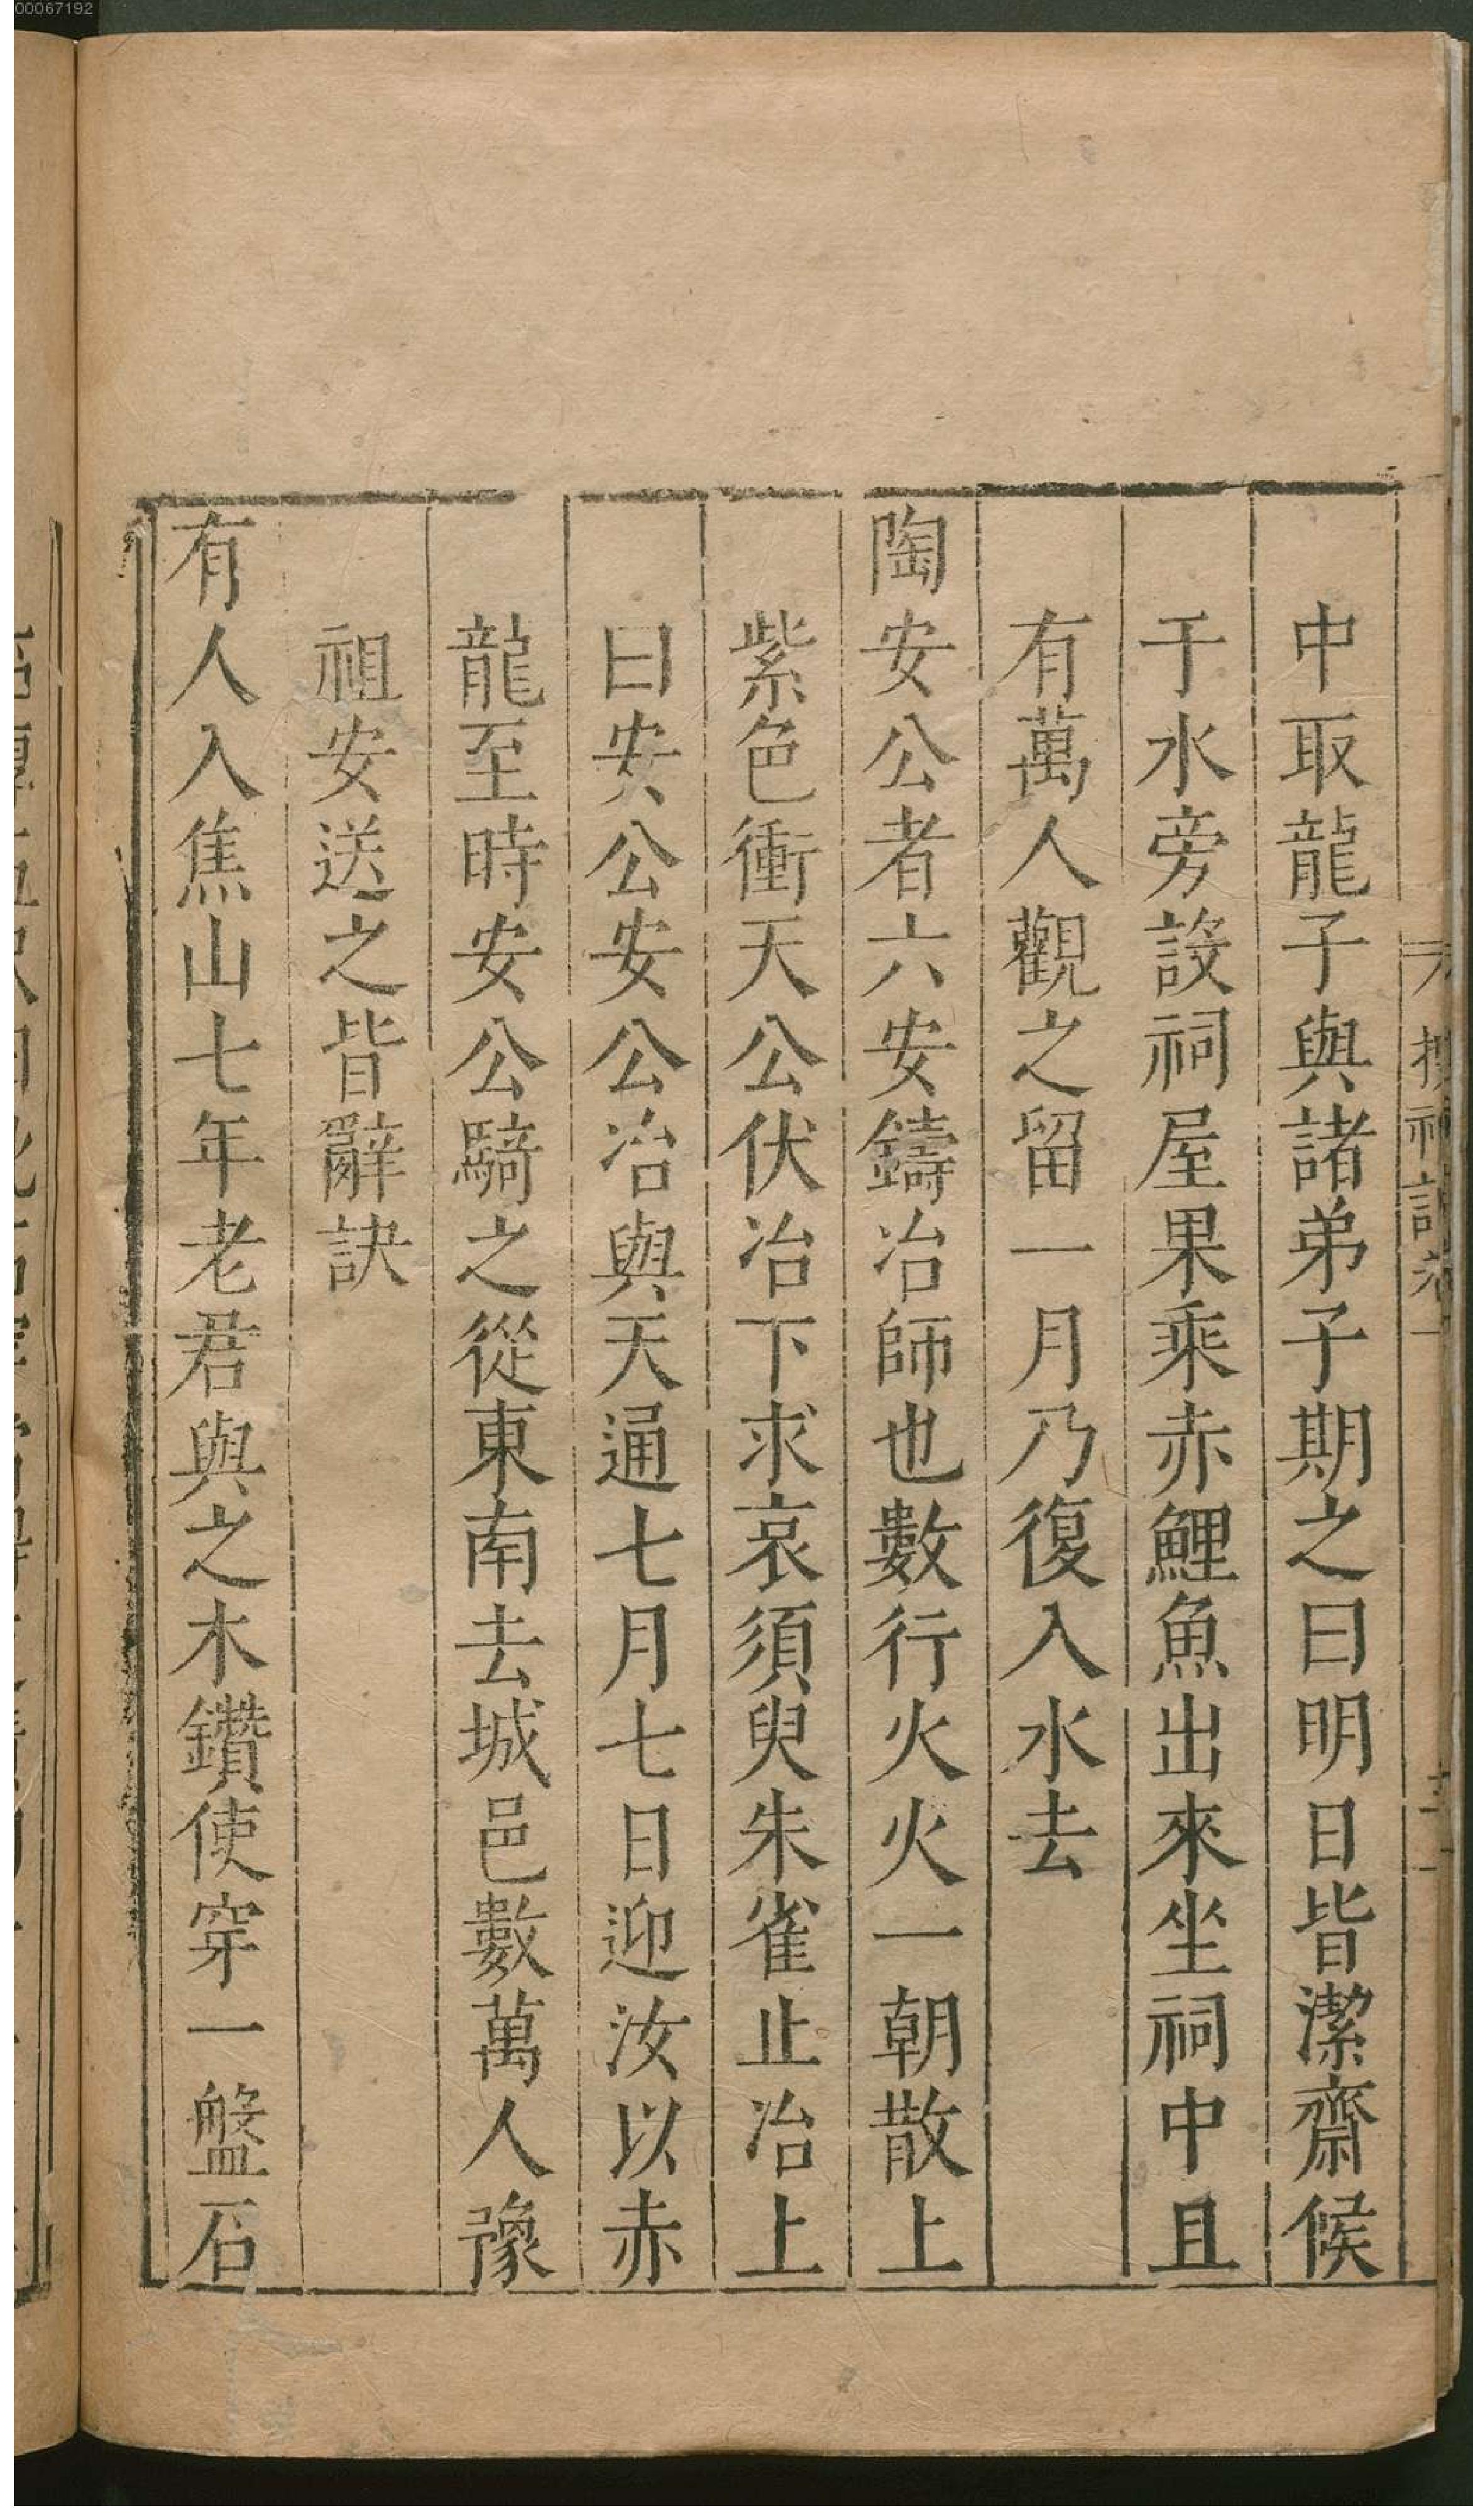 00067192
中取龍子與諸弟子期之曰明日皆潔齋候
于水旁設祠屋果乘赤鯉魚出來坐祠中且
有萬人觀之留一月乃復入水去
陶安公者六安鑄冶師也數行火火一朝散上
紫色衝天公伏冶下求哀須臾朱雀止冶上
曰安公安公冶與天通七月七日迎汝以赤
龍至時安公騎之從東南去城邑數萬人豫
祖安送之皆辭訣
有人入焦山七年老君與之木鑽使穿一盤石